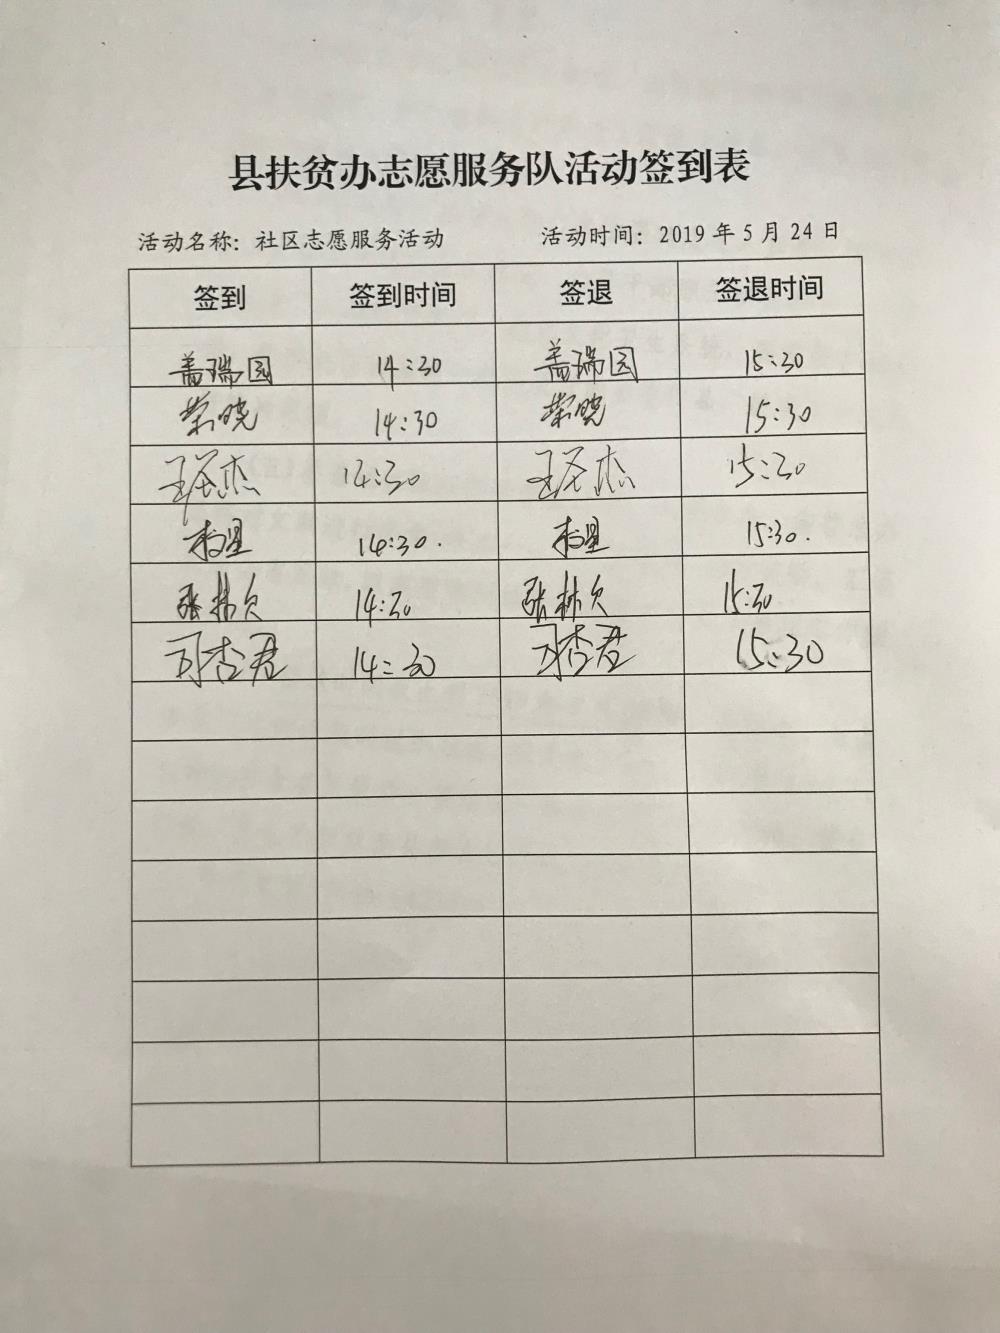 县扶贫办志愿服务队活动签到表
活动名称：社区志愿服务活动 活动时间：2019年5月24日
签到 签到时间 签退 签退时间
盖瑞园 14:30 盖瑞园 15:30
荣晓 14:30 荣晓 15:30
王圣杰 14:30 王圣杰 15:30
14:30. 15:30.
张林 14:30 张林 15:30
司杏君 14:30 司杏君 15:30